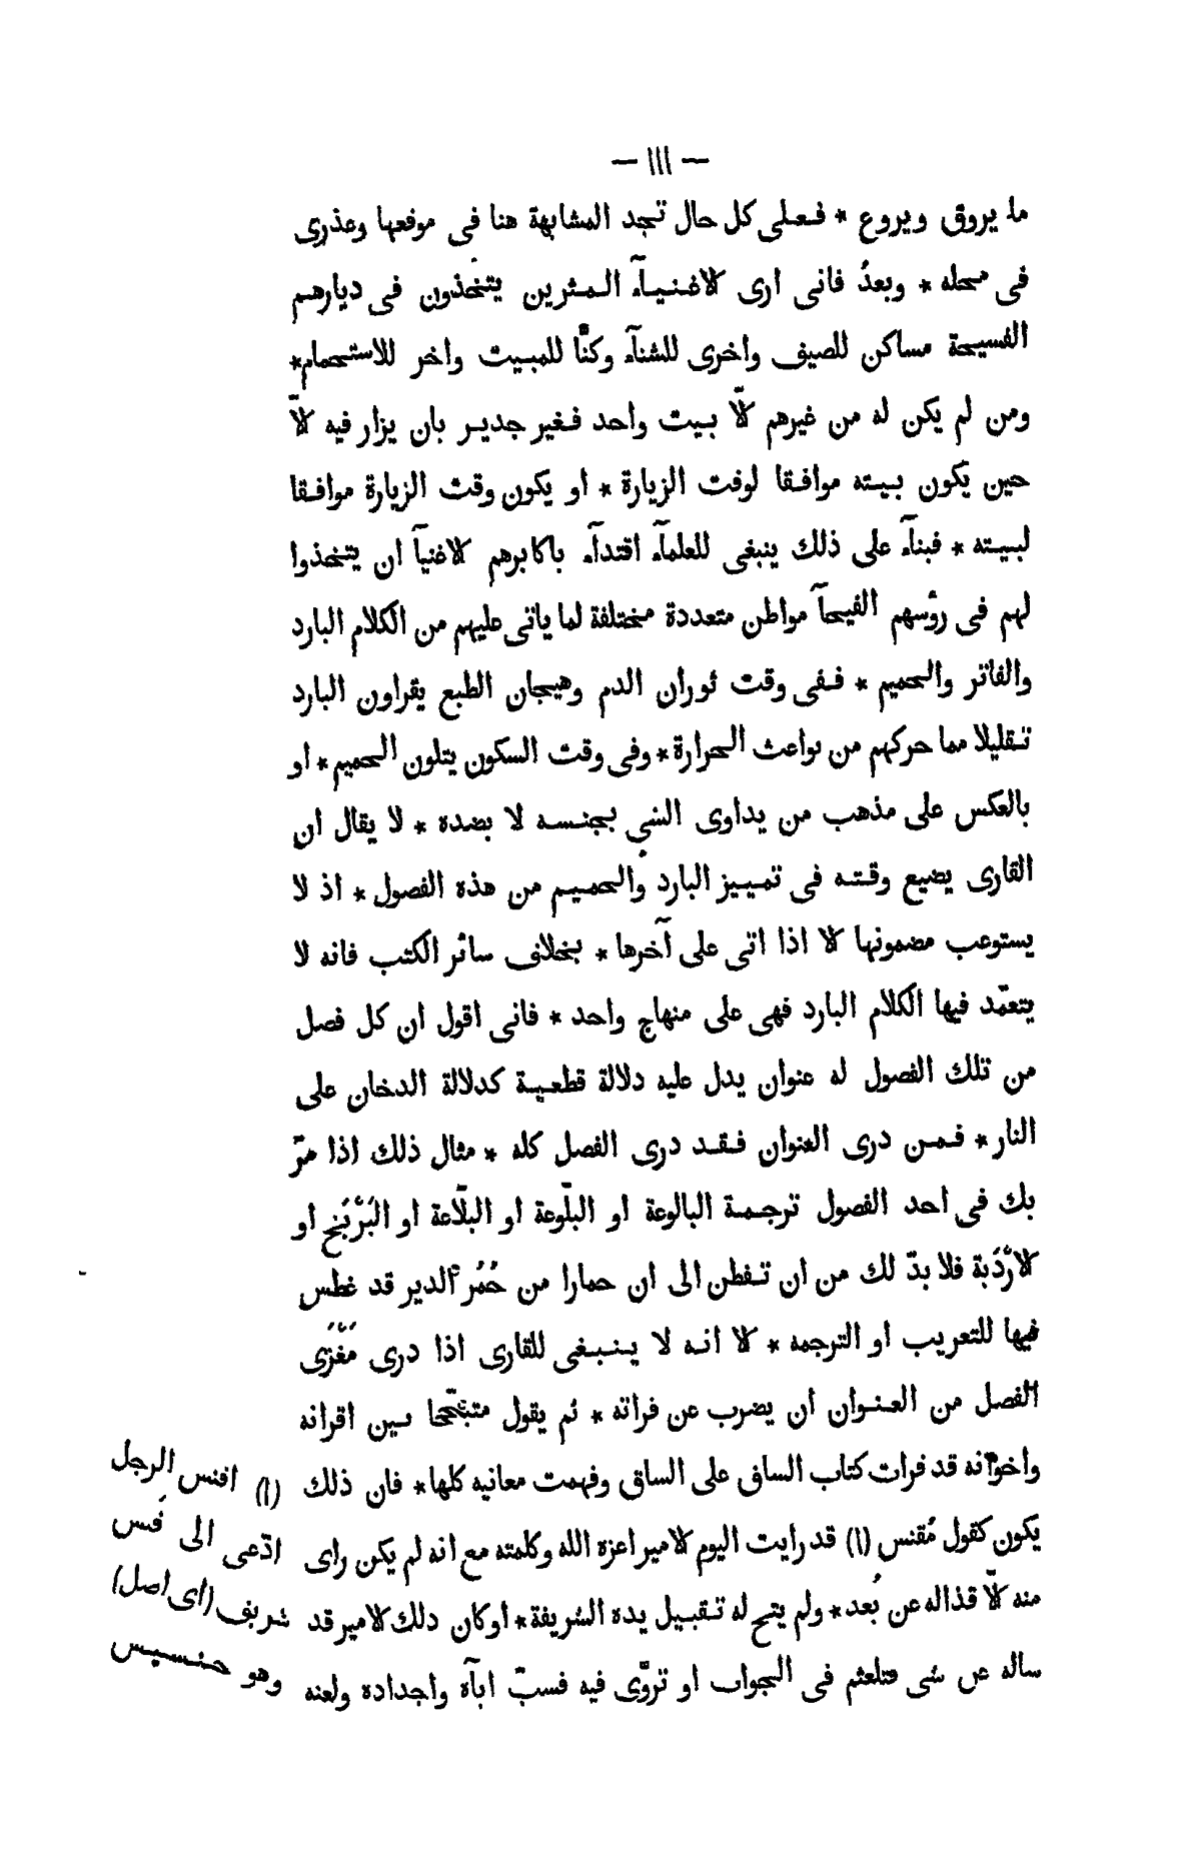 — ١١١ —
ما يروق ويروع * فعلى كل حال تجد المشابهة هنا فى موقعها وعذرى
فى محله * وبعدُ فانى ارى الاغنيآء المثرين يتخذون فى ديارهم
الفسيحة مساكن للصيف واخرى للشتآء وكنًّا للمبيت واخر للاستحمام*
ومن لم يكن له من غيرهم الّا بيت واحد فغير جدير بان يزار فيه الّا
حين يكون بيته موافقا لوقت الزيارة * او يكون وقت الزيارة موافقا
لبيته * فبنآء على ذلك ينبغى للعلمآء اقتدآء باكابرهم الاغنيآ ان يتخذوا
لهم فى رؤسهم الفيحآ مواطن متعددة مختلفة لما ياتى عليهم من الكلام البارد
والفاتر والحميم * ففى وقت ثوران الدم وهيجان الطبع يقراون البارد
تقليلا مما حركهم من بواعث الحرارة * وفى وقت السكون يتلون الحميم * او
بالعكس على مذهب من يداوى الشى بجنسه لا بضده * لا يقال ان
القارى يضيع وقته فى تمييز البارد والحميم من هذه الفصول * اذ لا
يستوعب مضمونها الا اذا اتى على آخرها * بخلاف سائر الكتب فانه لا
يتعمّد فيها الكلام البارد فهى على منهاج واحد * فانى اقول ان كل فصل
من تلك الفصول له عنوان يدل عليه دلالة قطعية كدلالة الدخان على
النار * فمن درى العنوان فقد درى الفصل كله * مثال ذلك اذا مرّ
بك فى احد الفصول ترجمة البالوعة او البلّوعة او البلّاعة او البَرْبَخ او
الارْدَبة فلا بدّ لك من ان تفطن الى ان حمارا من حُمُر الدير قد غطس
فيها للتعريب او الترجمه * الا انه لا ينبغى للقارى اذا درى مَغْزَى
الفصل من العنوان ان يضرب عن قراته * ثم يقول متبجّحا بين اقرانه
واخوانه قد قرات كتاب الساق على الساق وفهمت معانيه كلها * فان ذلك
يكون كقول مُقنس (١) قد رايت اليوم الامير اعزه الله وكلمته مع انه لم يكن راى
منه الّا قذاله عن بُعد * ولم يتح له تقبيل يده الشريفة * او كان ذلك الامير قد
ساله عن شى فتلعثم فى الجواب او تروّى فيه فسبّ ابآه واجداده ولعنه
(١) اقنس الرجل
ادّعى الى قَنس
شريف (اى اصل)
وهو خسيس